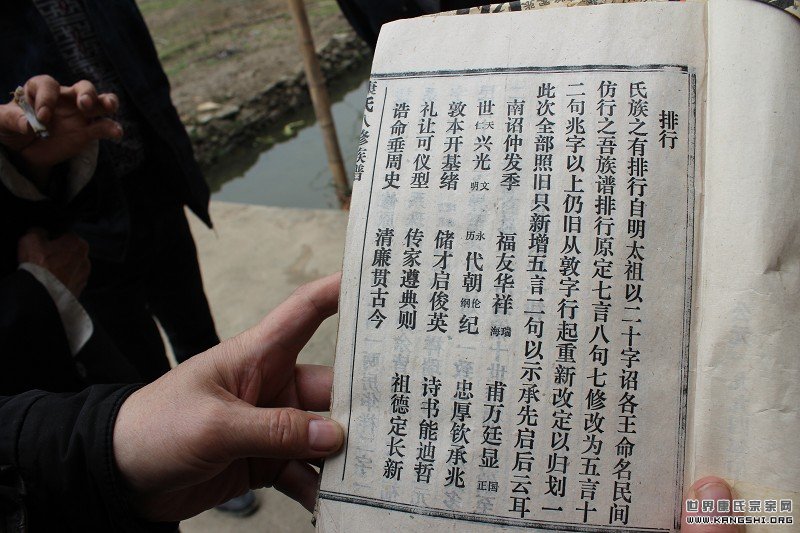 排行
氏族之有排行自明太祖以二十字诏各王命名民间
仿行之吾族谱排行原定七言八句七修改为五言十
二句兆字以上仍旧从敦字行起重新改定以归划一
此次全部照旧只新增五言二句以示承先启后云耳
南诏仲发季 福友华祥瑞海 甫万廷显国正
世天仁兴光文明 永历代朝伦纲纪 忠厚钦承兆
敦本开基绪 储才启俊英 诗书能迪哲
礼让可仪型 传家遵典则 祖德定长新
诰命垂周史 清廉贯古今
康氏八修族谱
世界康氏宗亲网
WWW.KANGSHI.ORG